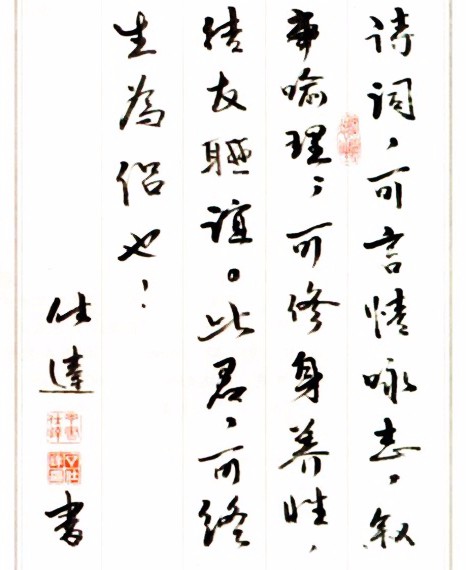 诗词，可言情咏志，叙
事喻理；可修身养性，
结友联谊。此君，可终
生为侣也！
仕達
书